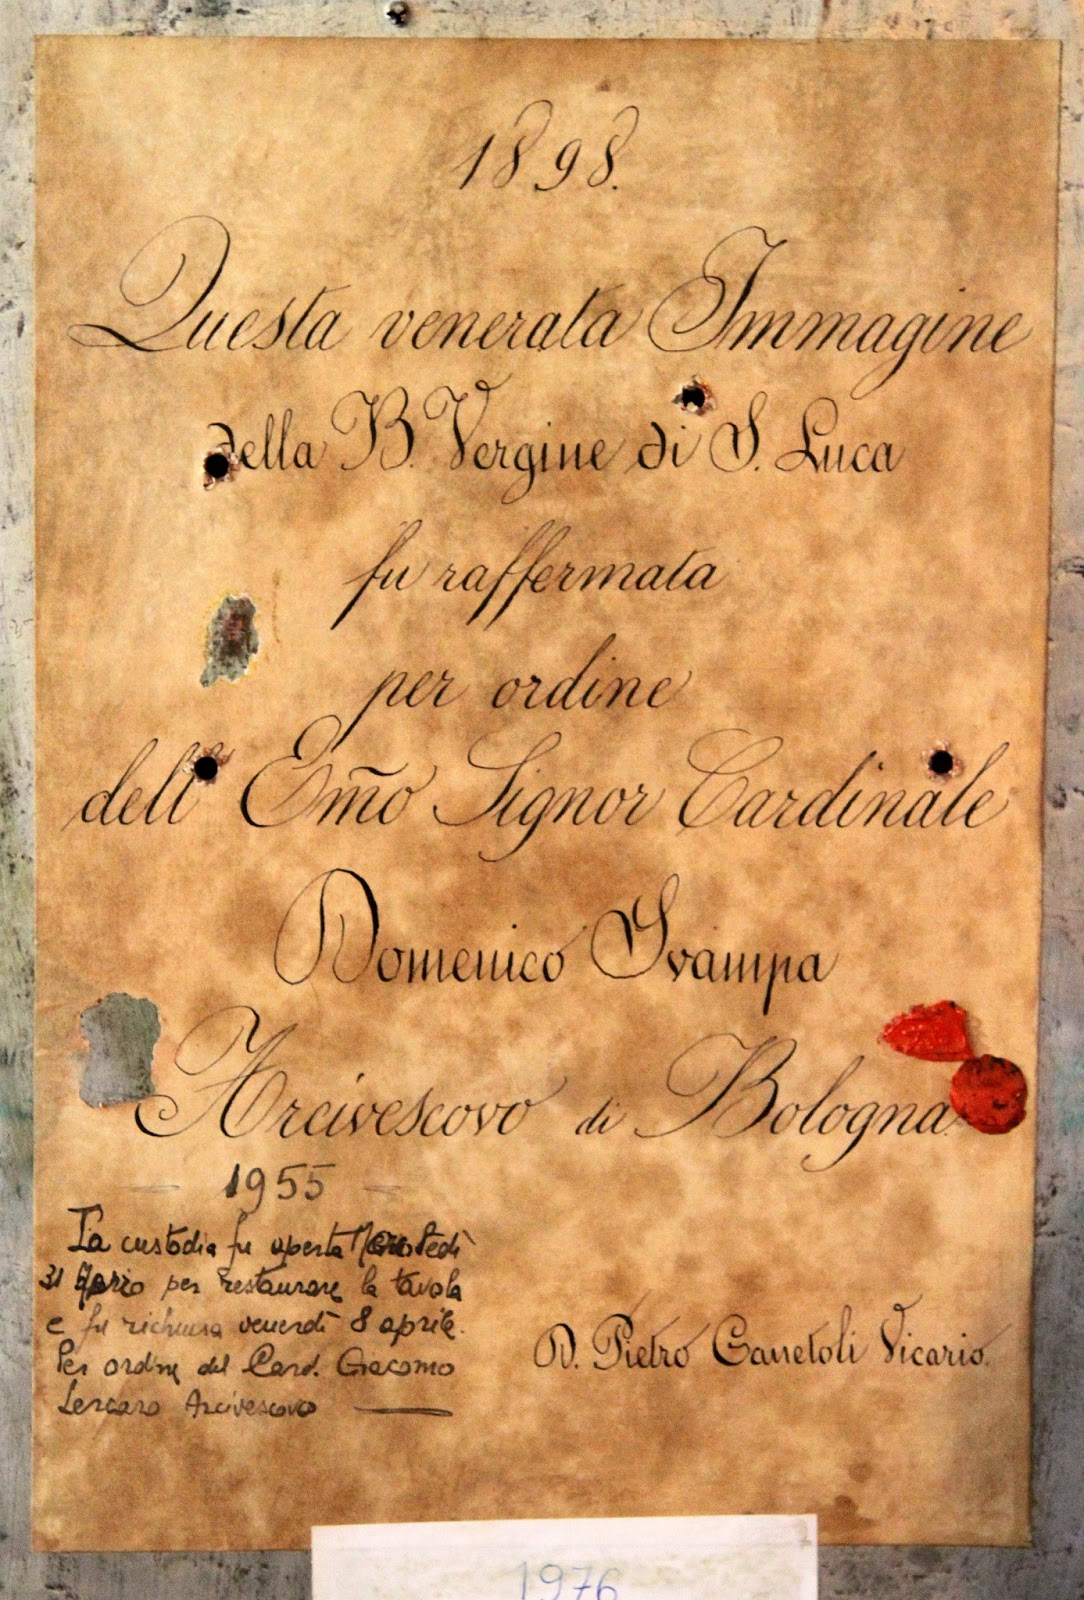 1898.
Questa venerata Immagine
della B. Vergine di S. Luca
fu raffermata
per ordine
dell' Em̃o Signor Cardinale
Domenico Svampa
Arcivescovo di Bologna.
1955
La custodia fu aperta
31 per restaurare la tavola
e fu richiusa venerdì 8 aprile.
Per ordine del Card. Giacomo
Lercaro Arcivescovo
D. Pietro Canetoli Vicario.
1976